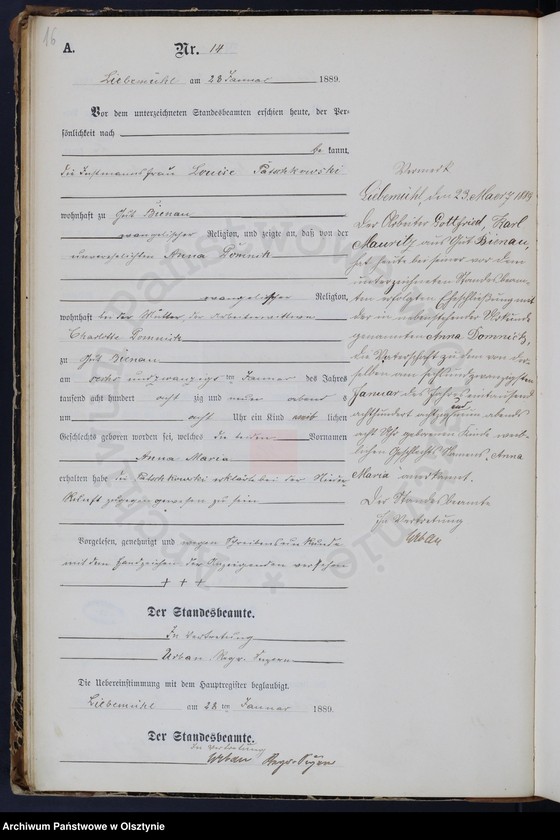 16
A.
Nr. 14
Liebemühl am 28 Januar 1889.
Vor dem unterzeichneten Standesbeamten erschien heute, der Per-
sönlichkeit nach
be kannt,
die Instmannsfrau Louise Patschkowski
wohnhaft zu Gut Bienau
evangelischer Religion, und zeigte an, daß von der
unverehelichten Anna Domnick
evangelischer Religion,
wohnhaft bei der Mutter, der Arbeiterwittwe
Charlotte Domnick
zu Gut Bienau
am sechs und zwanzigsten Januar des Jahres
tausend acht hundert acht zig und neun abends
um acht Uhr ein Kind weib lichen
Geschlechts geboren worden sei, welches die beiden Vornamen
Anna Maria
erhalten habe die Patschkowski erklärte bei der Nieder
kunft zugegen gewesen zu sein
Vorgelesen, genehmigt und wegen Schreibensunkunde
mit dem Handzeichen der Anzeigenden versehen
+ + +
Der Standesbeamte.
In Vertretung
Urban
Die Uebereinstimmung mit dem Hauptregister beglaubigt.
Liebemühl am 28 ten Januar 1889.
Der Standesbeamte.
In Vertretung
Urban
Vermerk
Liebemühl, den 23. Maerz 1889
Der Arbeiter Gottfried, Karl
Mauritz aus Gut Bienau,
hat heute bei seiner vor dem
unterzeichneten Standesbeam-
ten erfolgten Eheschließung mit
der in nebenstehender Urkunde
genannten Anna Domnick,
die Vaterschaft zu dem von der-
selben am sechsundzwanzigsten
Januar des Jahres eintausend
achthundert achtzig neun abends
acht Uhr geborenen Kinde weib-
lichen Geschlechts Namens "Anna
Maria" anerkannt.
Der Standesbeamte
In Vertretung
Urban
Archiwum Państwowe w Olsztynie